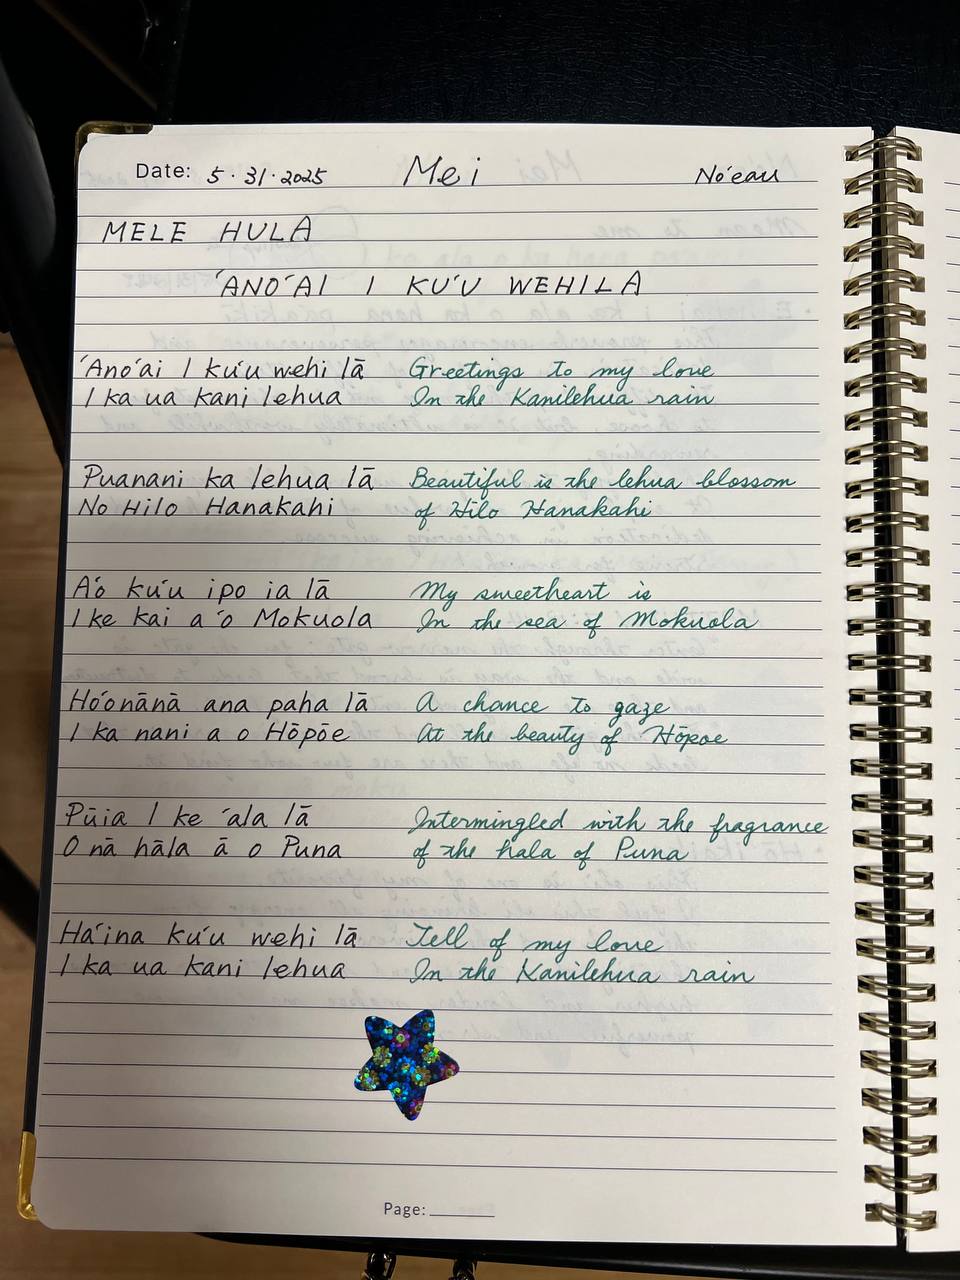 Date: 5·31·2025 Mei No'eau
MELE HULA
'ANO'AI I KU'U WEHI LA
'Ano'ai I ku'u wehi lā Greetings to my love
I ka ua kani lehua In the Kanilehua rain
Puanani ka lehua lā Beautiful is the lehua blossom
No Hilo Hanakahi of Hilo Hanakahi
A'o ku'u ipo ia lā My sweetheart is
I ke kai a'o Mokuola In the sea of Mokuola
Ho'onānā ana paha lā A chance to gaze
I ka nani a o Hōpōe At the beauty of Hōpoe
Pūia I ke 'ala lā Intermingled with the fragrance
O nā hāla ā o Puna of the hala of Puna
Ha'ina ku'u wehi lā Tell of my love
I ka ua kani lehua In the Kanilehua rain
Page: